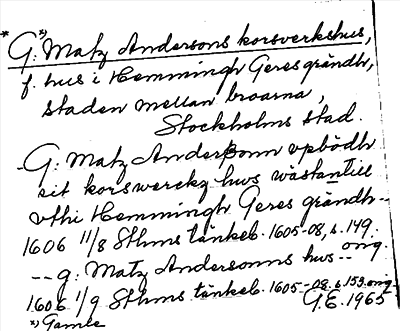 *G:*) Matz Andersons korsverkshus,
f. hus i Hemmingh Geres gràndh,
staden mellan broarna,
Stockholms stad.
-G: Matz Anderßonn vpbödh
sit korswerckz hws wästantill
vthi Hemmingh Geres grändh--
1606 11/8 Sthms tänkeb. 1605-08, s. 149.
--g: Matz Andersonns hws-- orig.
1606 1/9 Sthms tänkeb. 1605-08 s. 159. orig.
G.E. 1965
*) Gamle